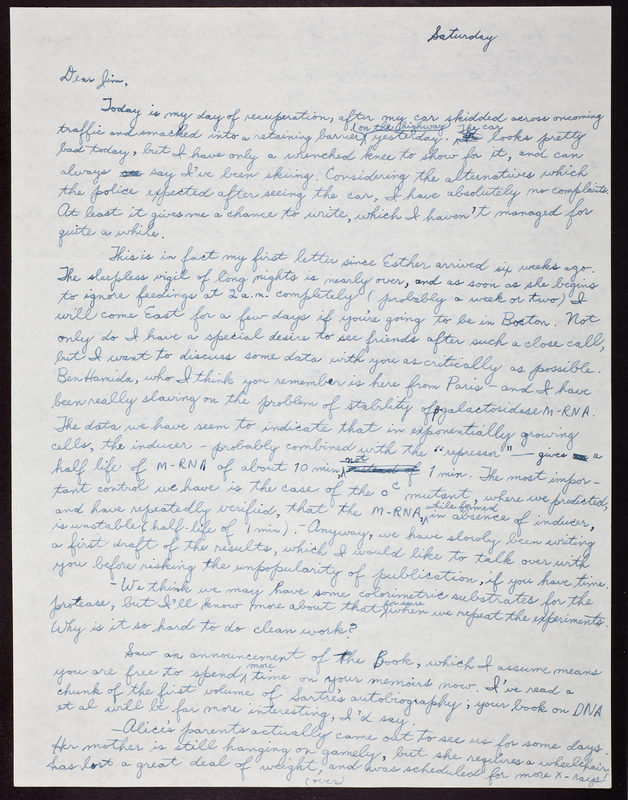 Saturday
Dear Jim,
Today is my day of recuperation, after my car skidded across oncoming
traffic and smacked into a retaining barrier on the highway yesterday. The car looks pretty
bad today, but I have only a wrenched knee to show for it, and can
always say I've been skiing. Considering the alternatives which
the police expected after seeing the car, I have absolutely no complaints.
At least it gives me a chance to write, which I haven't managed for
quite a while.
This is in fact my first letter since Esther arrived six weeks ago.
The sleepless vigil of long nights is nearly over, and as soon as she begins
to ignore feedings at 2 a.m. completely (probably a week or two) I
will come East for a few days if you're going to be in Boston. Not
only do I have a special desire to see friends after such a close call,
but I want to discuss some data with you as critically as possible.
Ben Hamida, who I think you remember is here from Paris - and I have
been really slaving on the problem of stability of β galactosidase M-RNA.
The data we have seem to indicate that in exponentially growing
cells, the inducer - probably combined with the "repressor" - gives a
half life of M-RNA of about 10 min, not 1 min. The most impor-
tant control we have is the case of the o^c mutant, where we predicted,
and have repeatedly verified, that the M-RNA, while formed in absence of inducer,
is unstable (half-life of 1 min). - Anyway, we have slowly been writing
a first draft of the results, which I would like to talk over with
you before risking the unpopularity of publication, if you have time.
- We think we may have some colorimetric substrates for the
protease, but I'll know more about that for sure when we repeat the experiments.
Why is it so hard to do clean work?
Saw an announcement of the Book, which I assume means
you are free to spend more time on your memoirs now. I've read a
chunk of the first volume of Sartre's autobiography; your book on DNA
et al will be far more interesting, I'd say.
- Alice's parents actually came out to see us for some days.
Her mother is still hanging on gamely, but she requires a wheelchair,
has lost a great deal of weight, and was scheduled for more X-rays!
(over)